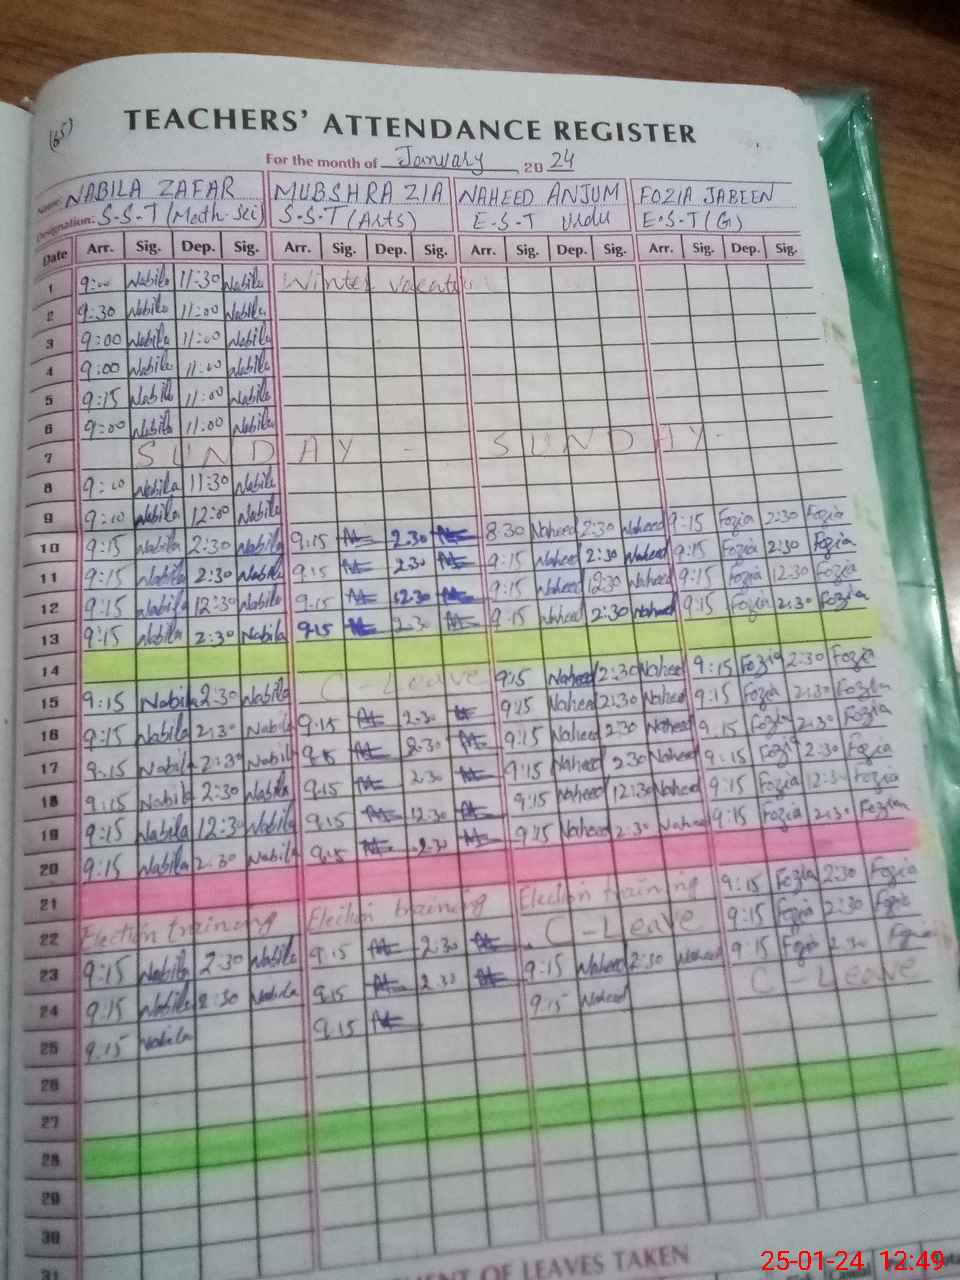 (65)
TEACHERS' ATTENDANCE REGISTER
For the month of January 2024
Name: NABILA ZAFAR MUBSHRA ZIA NAHEED ANJUM FOZIA JABEEN
Designation: S-S-T (Math-Sci) S-S-T (Arts) E-S-T Urdu E-S-T (G)
Date Arr. Sig. Dep. Sig. Arr. Sig. Dep. Sig. Arr. Sig. Dep. Sig. Arr. Sig. Dep. Sig.
1 9:00 Nabila 11:30 Nabila Winter vacation
2 9:30 Nabila 11:00 Nabila
3 9:00 Nabila 11:00 Nabila
4 9:00 Nabila 11:00 Nabila
5 9:15 Nabila 11:00 Nabila
6 9:00 Nabila 11:00 Nabila
7 SUNDAY - SUNDAY-
8 9:00 Nabila 11:30 Nabila
9 9:00 Nabila 12:00 Nabila
10 9:15 Nabila 2:30 Nabila 9:15 2:30 8:30 Naheed 2:30 Naheed 9:15 Fozia 2:30 Fozia
11 9:15 Nabila 2:30 Nabila 9:15 2:30 9:15 Naheed 2:30 Naheed 9:15 Fozia 2:30 Fozia
12 9:15 Nabila 12:30 Nabila 9:15 12:30 9:15 Naheed 12:30 Naheed 9:15 Fozia 12:30 Fozia
13 9:15 Nabila 2:30 Nabila 9:15 2:30 9:15 Naheed 2:30 Naheed 9:15 Fozia 2:30 Fozia
14
15 9:15 Nabila 2:30 Nabila C-Leave 9:15 Naheed 2:30 Naheed 9:15 Fozia 2:30 Fozia
16 9:15 Nabila 2:30 Nabila 9:15 2:30 9:15 Naheed 2:30 Naheed 9:15 Fozia 2:30 Fozia
17 9:15 Nabila 2:30 Nabila 9:15 2:30 9:15 Naheed 2:30 Naheed 9:15 Fozia 2:30 Fozia
18 9:15 Nabila 2:30 Nabila 9:15 2:30 9:15 Naheed 2:30 Naheed 9:15 Fozia 2:30 Fozia
19 9:15 Nabila 12:30 Nabila 9:15 12:30 9:15 Naheed 12:30 Naheed 9:15 Fozia 12:30 Fozia
20 9:15 Nabila 2:30 Nabila 9:15 2:30 9:15 Naheed 2:30 Naheed 9:15 Fozia 2:30 Fozia
21
22 Election training Election training Election training 9:15 Fozia 2:30 Fozia
23 9:15 Nabila 2:30 Nabila 9:15 2:30 C-Leave 9:15 Fozia 2:30 Fozia
24 9:15 Nabila 2:30 Nabila 9:15 2:30 9:15 Naheed 2:30 Naheed 9:15 Fozia 2:30 Fozia
25 9:15 Nabila 9:15 9:15 Naheed C-Leave
26
27
28
29
30
31
OF LEAVES TAKEN
25-01-24 12:49